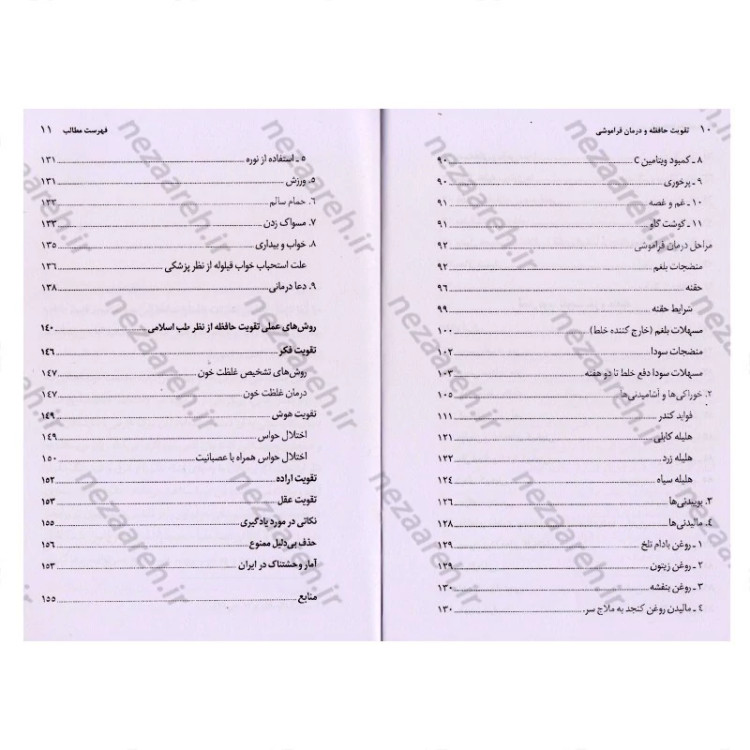 ۱۰ تقویت حافظه و درمان فراموشی
۸ ـ کمبود ویتامین C ۹۰
۹ ـ پرخوری ۹۰
۱۰ ـ غم و غصه ۹۱
۱۱ ـ گوشت گاو ۹۱
مراحل درمان فراموشی ۹۲
منضجات بلغم ۹۲
حقنه ۹۶
شرایط حقنه ۹۹
مسهلات بلغم (خارج کننده خلط) ۱۰۰
منضجات سودا ۱۰۲
مسهلات سودا دفع خلط تا دو هفته ۱۰۳
۲. خوراکی‌ها و آشامیدنی‌ها ۱۰۵
فواید کندر ۱۱۱
هلیله کابلی ۱۲۱
هلیله زرد ۱۲۲
هلیله سیاه ۱۲۴
۳. بوییدنی‌ها ۱۲۶
۴. مالیدنی‌ها ۱۲۸
۱ ـ روغن بادام تلخ ۱۲۹
۲ ـ روغن زیتون ۱۲۹
۳ ـ روغن بنفشه ۱۳۰
۴ ـ مالیدن روغن کنجد به ملاج سر ۱۳۰
فهرست مطالب ۱۱
۵ ـ استفاده از نوره ۱۳۱
۵. ورزش ۱۳۱
۶. حمام سالم ۱۳۳
۷. مسواک زدن ۱۳۳
۸. خواب و بیداری ۱۳۵
علت استحباب خواب قیلوله از نظر پزشکی ۱۳۶
۹. دعا درمانی ۱۳۸
روش‌های عملی تقویت حافظه از نظر طب اسلامی ۱۴۰
تقویت فکر ۱۴۶
روش‌های تشخیص غلظت خون ۱۴۷
درمان غلظت خون ۱۴۷
تقویت هوش ۱۴۹
اختلال حواس ۱۴۹
اختلال حواس همراه با عصبانیت ۱۵۰
تقویت اراده ۱۵۲
تقویت عقل ۱۵۳
نکاتی در مورد یادگیری ۱۵۵
حذف بی‌دلیل ممنوع ۱۵۶
آمار وحشتناک در ایران ۱۵۳
منابع ۱۵۵
nezaareh.ir
nezaareh.ir
nezaareh.ir
nezaareh.ir
nezaareh.ir
nezaareh.ir
nezaareh.ir
nezaareh.ir
nezaareh.ir